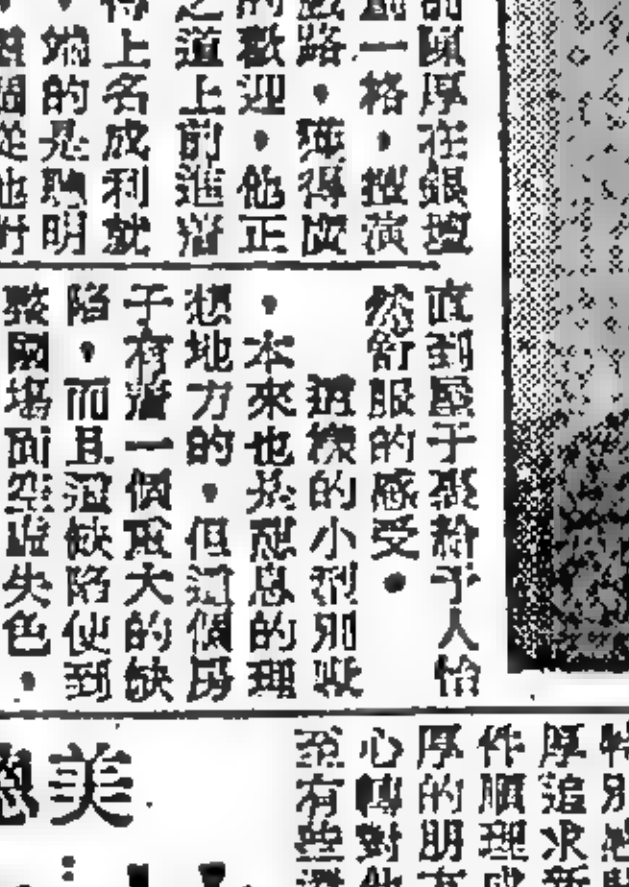 厚在銀壇
一格，擔演
戲路，獲得廣
的歡迎，他正
之道上前進着
得上名成利就
，端的是聰明
個從他對
直到屋子裏給予人怡
然舒服的感受。
這樣的小型別墅
，本來也是憩息的理
想地方的，但這個房
子有着一個重大的缺
陷，而且這缺陷使到
整個場面空虛失色，
特別
厚追求新
件順理成
厚的朋友
心轉對他
至有些
美